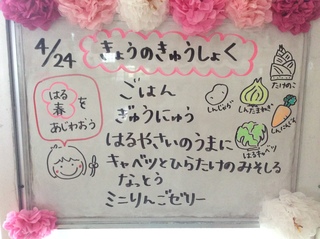 4/24
きょうのきゅうしょく
はる
春を
あじわおう
ごはん
ぎゅうにゅう
はるやさいのうまに
キャベツとひらたけのみそしる
なっとう
ミニりんごゼリー
たけのこ
しんじゃが
しんたまねぎ
しんにんじん
はるキャベツ